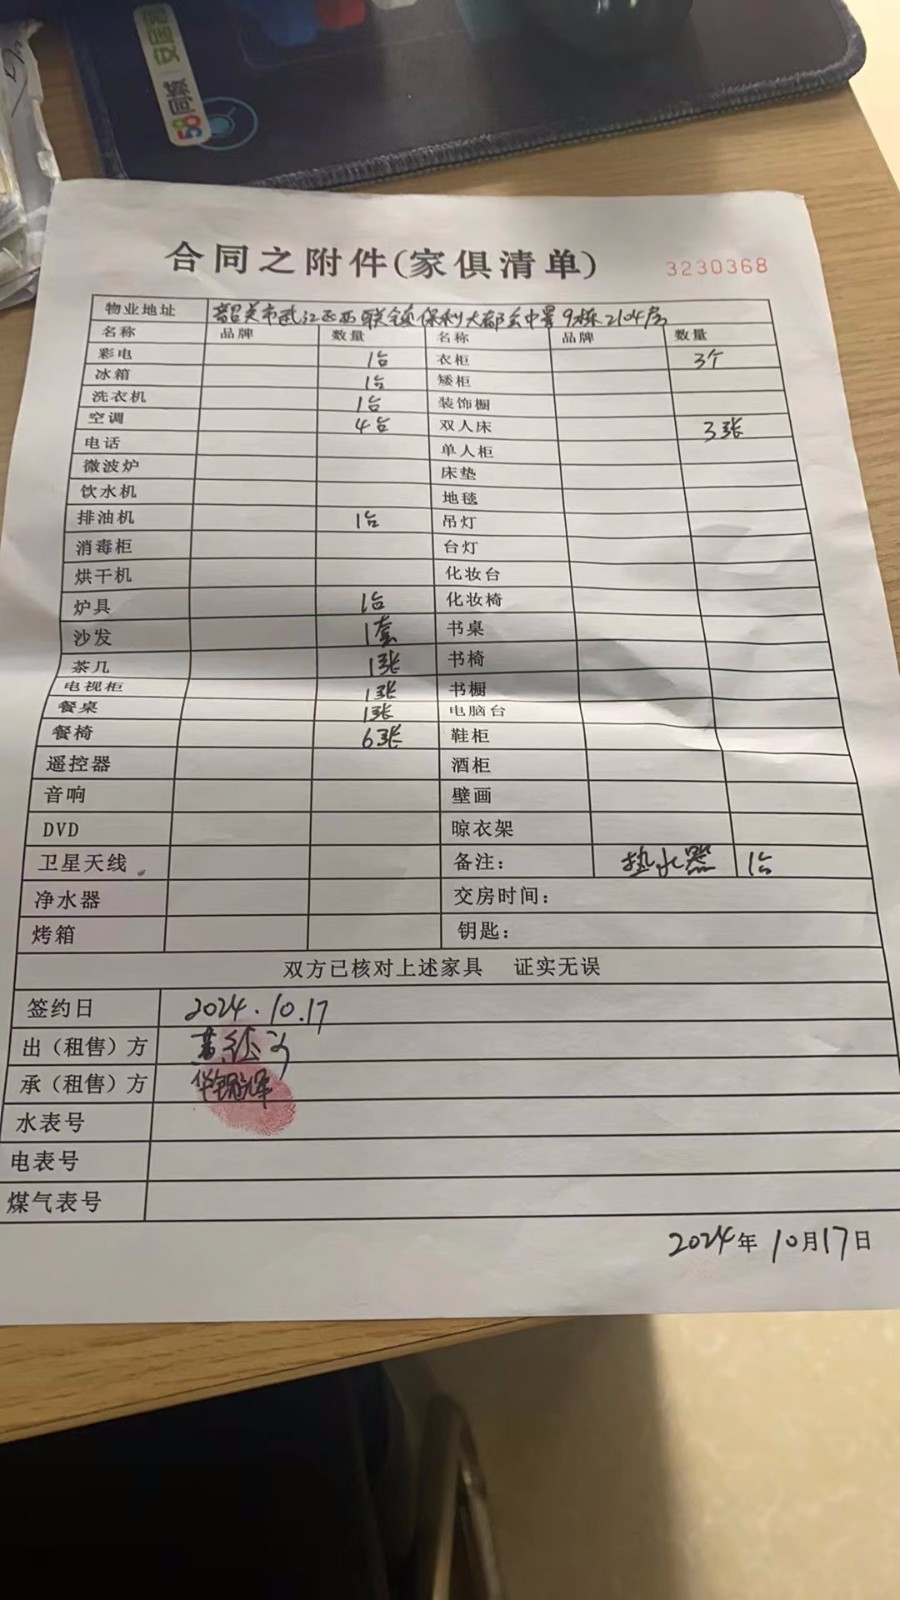 58同城 安居客
合同之附件(家俱清单) 3230368
物业地址 韶关市武江区西联镇保利大都会中景9栋2104房
名称 品牌 数量 名称 品牌 数量
彩电 1台 衣柜 3个
冰箱 1台 矮柜
洗衣机 1台 装饰橱
空调 4台 双人床 3张
电话 单人柜
微波炉 床垫
饮水机 地毯
排油机 1台 吊灯
消毒柜 台灯
烘干机 化妆台
炉具 1台 化妆椅
沙发 1套 书桌
茶几 1张 书椅
电视柜 1张 书橱
餐桌 1张 电脑台
餐椅 6张 鞋柜
遥控器 酒柜
音响 壁画
DVD 晾衣架
卫星天线 备注: 热水器 1台
净水器 交房时间:
烤箱 钥匙:
双方已核对上述家具 证实无误
签约日 2024.10.17
出(租售)方
承(租售)方
水表号
电表号
煤气表号
2024年10月17日